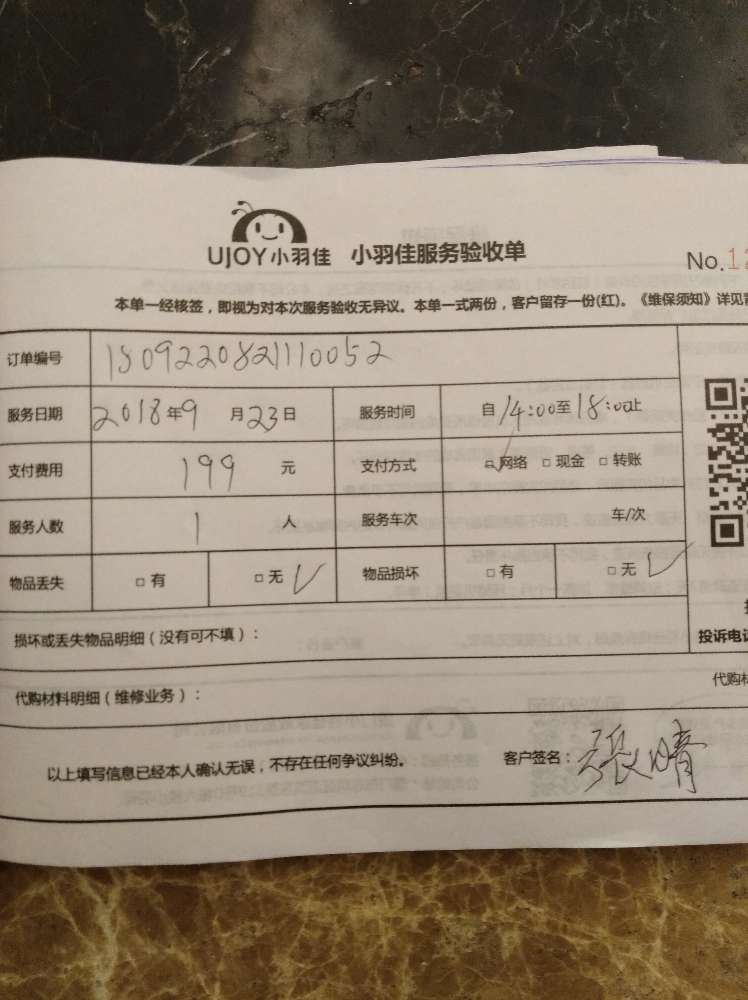 UJOY小羽佳 小羽佳服务验收单
No.12
本单一经核签，即视为对本次服务验收无异议。本单一式两份，客户留存一份(红)。《维保须知》详见背
订单编号 1809220821110052
服务日期 2018年9月23日 服务时间 自14:00至18:00止
支付费用 199 元 支付方式 □网络 □现金 □转账
服务人数 1 人 服务车次 车/次
物品丢失 □有 □无 √ 物品损坏 □有 □无 √
损坏或丢失物品明细（没有可不填）：
投诉电话
代购材料明细（维修业务）：
代购材
以上填写信息已经本人确认无误，不存在任何争议纠纷。 客户签名：張晴